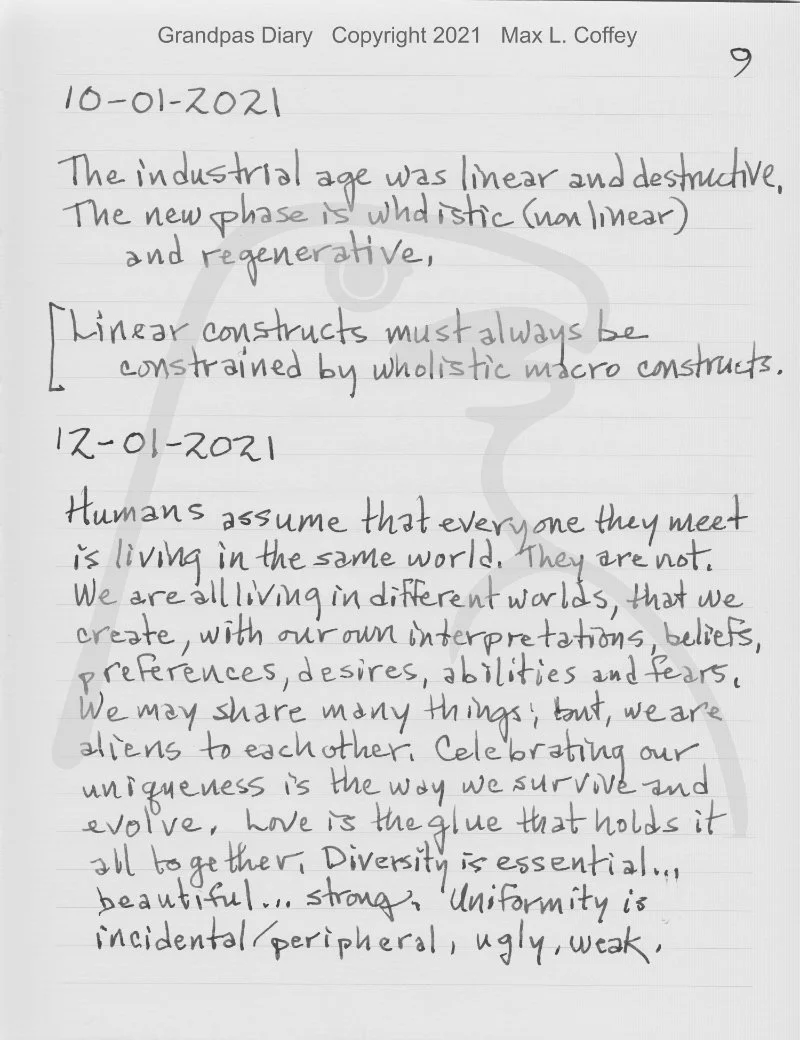 Grandpas Diary Copyright 2021 Max L. Coffey
9
10-01-2021
The industrial age was linear and destructive,
The new phase is wholistic (non linear)
and regenerative,
[Linear constructs must always be
constrained by wholistic macro constructs.
12-01-2021
Humans assume that everyone they meet
is living in the same world. They are not.
We are all living in different worlds, that we
create, with our own interpretations, beliefs,
preferences, desires, abilities and fears.
We may share many things; but, we are
aliens to each other. Celebrating our
uniqueness is the way we survive and
evolve. Love is the glue that holds it
all together. Diversity is essential...
beautiful... strong. Uniformity is
incidental/peripheral, ugly, weak.